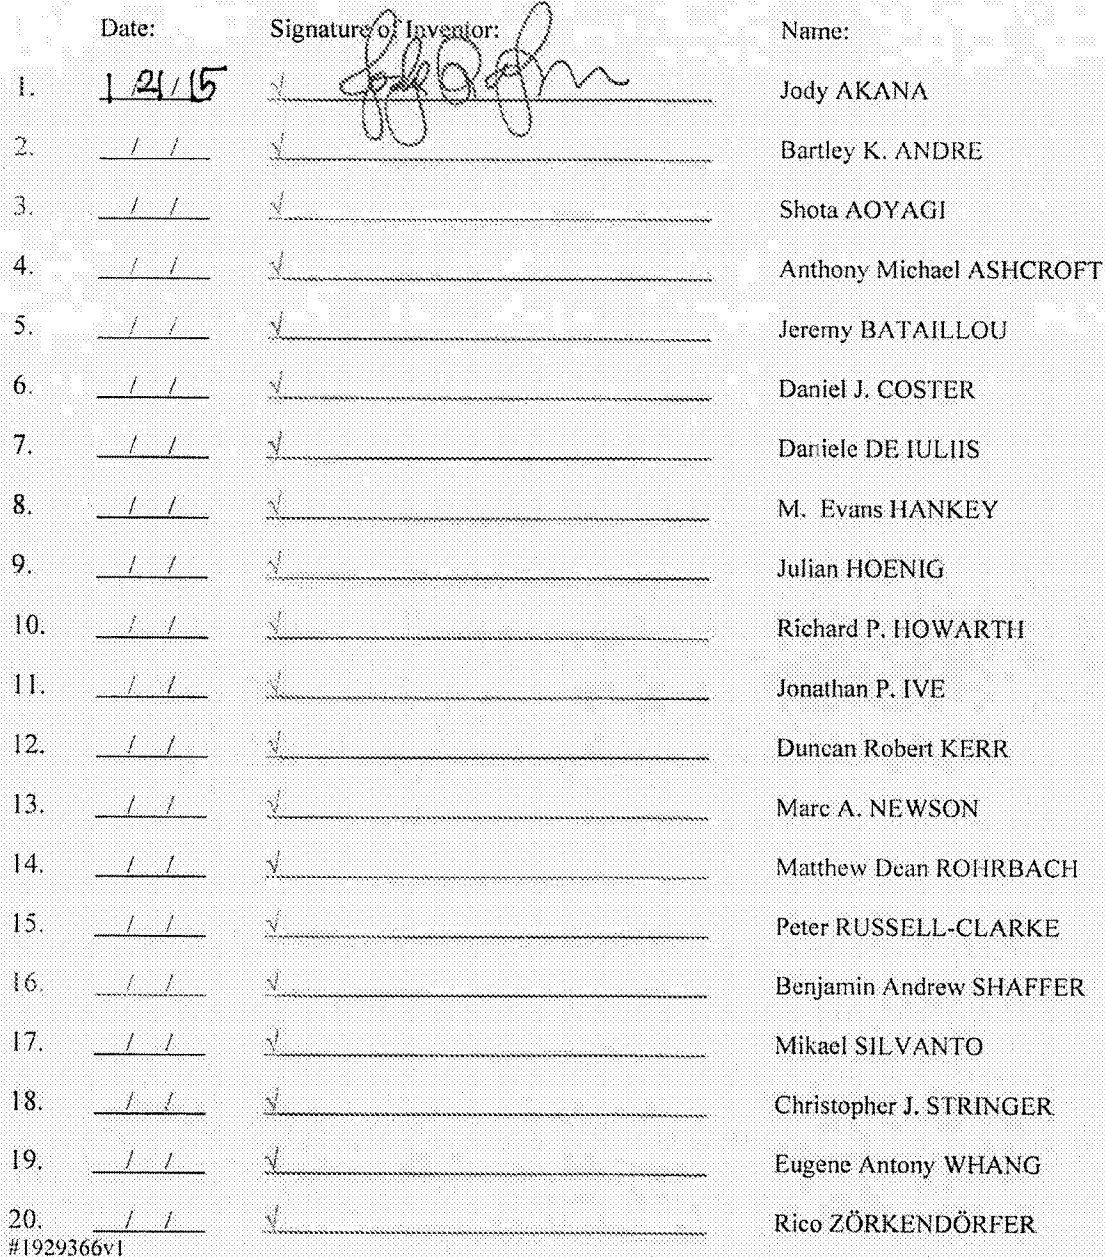 Date: Signature of Inventor: Name:
1. 1/21/15 √ Jody AKANA
2. / / √ Bartley K. ANDRE
3. / / √ Shota AOYAGI
4. / / √ Anthony Michael ASHCROFT
5. / / √ Jeremy BATAILLOU
6. / / √ Daniel J. COSTER
7. / / √ Daniele DE IULIIS
8. / / √ M. Evans HANKEY
9. / / √ Julian HOENIG
10. / / √ Richard P. HOWARTH
11. / / √ Jonathan P. IVE
12. / / √ Duncan Robert KERR
13. / / √ Marc A. NEWSON
14. / / √ Matthew Dean ROHRBACH
15. / / √ Peter RUSSELL-CLARKE
16. / / √ Benjamin Andrew SHAFFER
17. / / √ Mikael SILVANTO
18. / / √ Christopher J. STRINGER
19. / / √ Eugene Antony WHANG
20. / / √ Rico ZÖRKENDÖRFER
#1929366v1